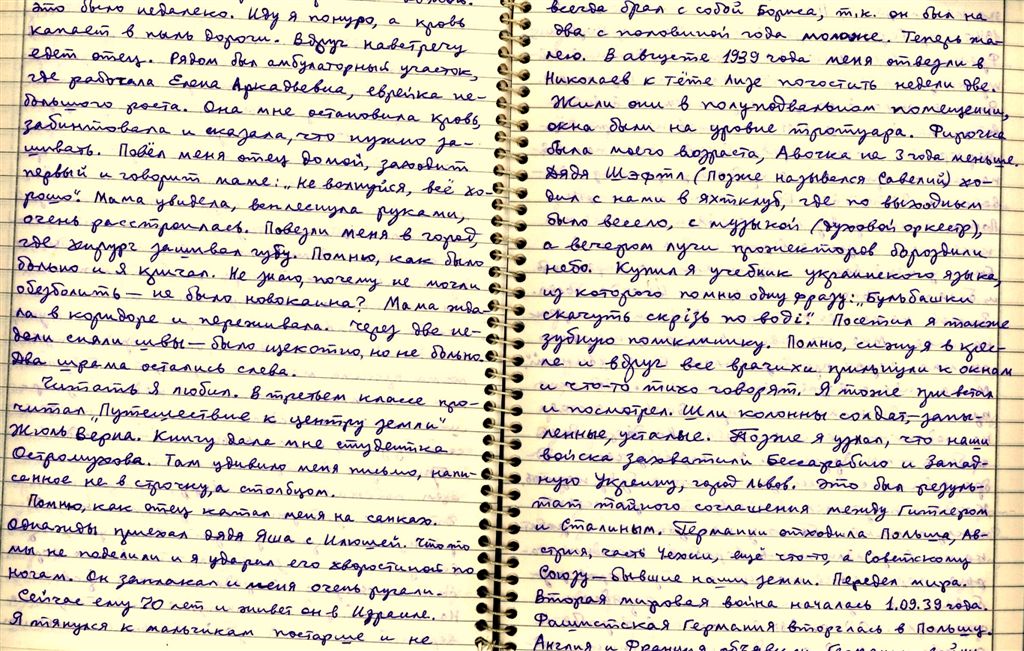 это было недалеко. Иду я понуро, а кровь
капает в пыль дороги. Вдруг навстречу
едет отец. Рядом был амбулаторный участок,
где работала Елена Аркадьевна, еврейка не-
большого роста. Она мне остановила кровь,
забинтовала и сказала, что нужно за-
шивать. Повёл меня отец домой, заходит
первый и говорит маме: „Не волнуйся, всё хо-
рошо". Мама увидела, всплеснула руками,
очень расстроилась. Повезли меня в город,
где хирург зашивал губу. Помню, как было
больно и я кричал. Не знаю, почему не могли
обезболить — не было новокаина? Мама жда-
ла в коридоре и переживала. Через две не-
дели сняли швы — было щекотно, но не больно.
Два шрама остались слева.
Читать я любил. В третьем классе про-
читал „Путешествие к центру земли"
Жюль Верна. Книгу дала мне студентка
Остромухова. Там удивило меня письмо, напи-
санное не в строчку, а столбцом.
Помню, как отец катал меня на санках.
Однажды приехал дядя Яша с Илюшей. Что-то
мы не поделили и я ударил его хворостиной по
ногам. Он заплакал и меня очень ругали.
Сейчас ему 70 лет и живет он в Израиле.
Я тянулся к мальчикам постарше и не
всегда брал с собой Бориса, т.к. он был на
два с половиной года моложе. Теперь жа-
лею. В августе 1939 года меня отвезли в
Николаев к тёте Лизе погостить недели две.
Жили они в полуподвальном помещении,
окна были на уровне тротуара. Фирочка
была моего возраста, Авочка на 3 года меньше.
Дядя Шэфтл (Позже назывался Савелий) хо-
дил с нами в яхтклуб, где по выходным
было весело, с музыкой (духовой оркестр),
а вечером лучи прожекторов бороздили
небо. Купил я учебник украинского языка,
из которого помню одну фразу: „Бульбашки
скачуть скрізь по воді". Посетил я также
зубную поликлинику. Помню, сижу я в крес-
ле и вдруг все врачихи прильнули к окнам
и что-то тихо говорят. Я тоже привстал
и посмотрел. Шли колонны солдат, — запы-
ленные, усталые. Позже я узнал, что наши
войска захватили Бессарабию и Запад-
ную Украину, город Львов. Это был резуль-
тат тайного соглашения между Гитлером
и Сталиным. Германии отходила Польша, Ав-
стрия, часть Чехии, ещё что-то, а Советскому
Союзу — бывшие наши земли. Передел мира.
Вторая мировая война началась 1.09.39 года.
Фашистская Германия вторглась в Польшу.
Англия и Франция